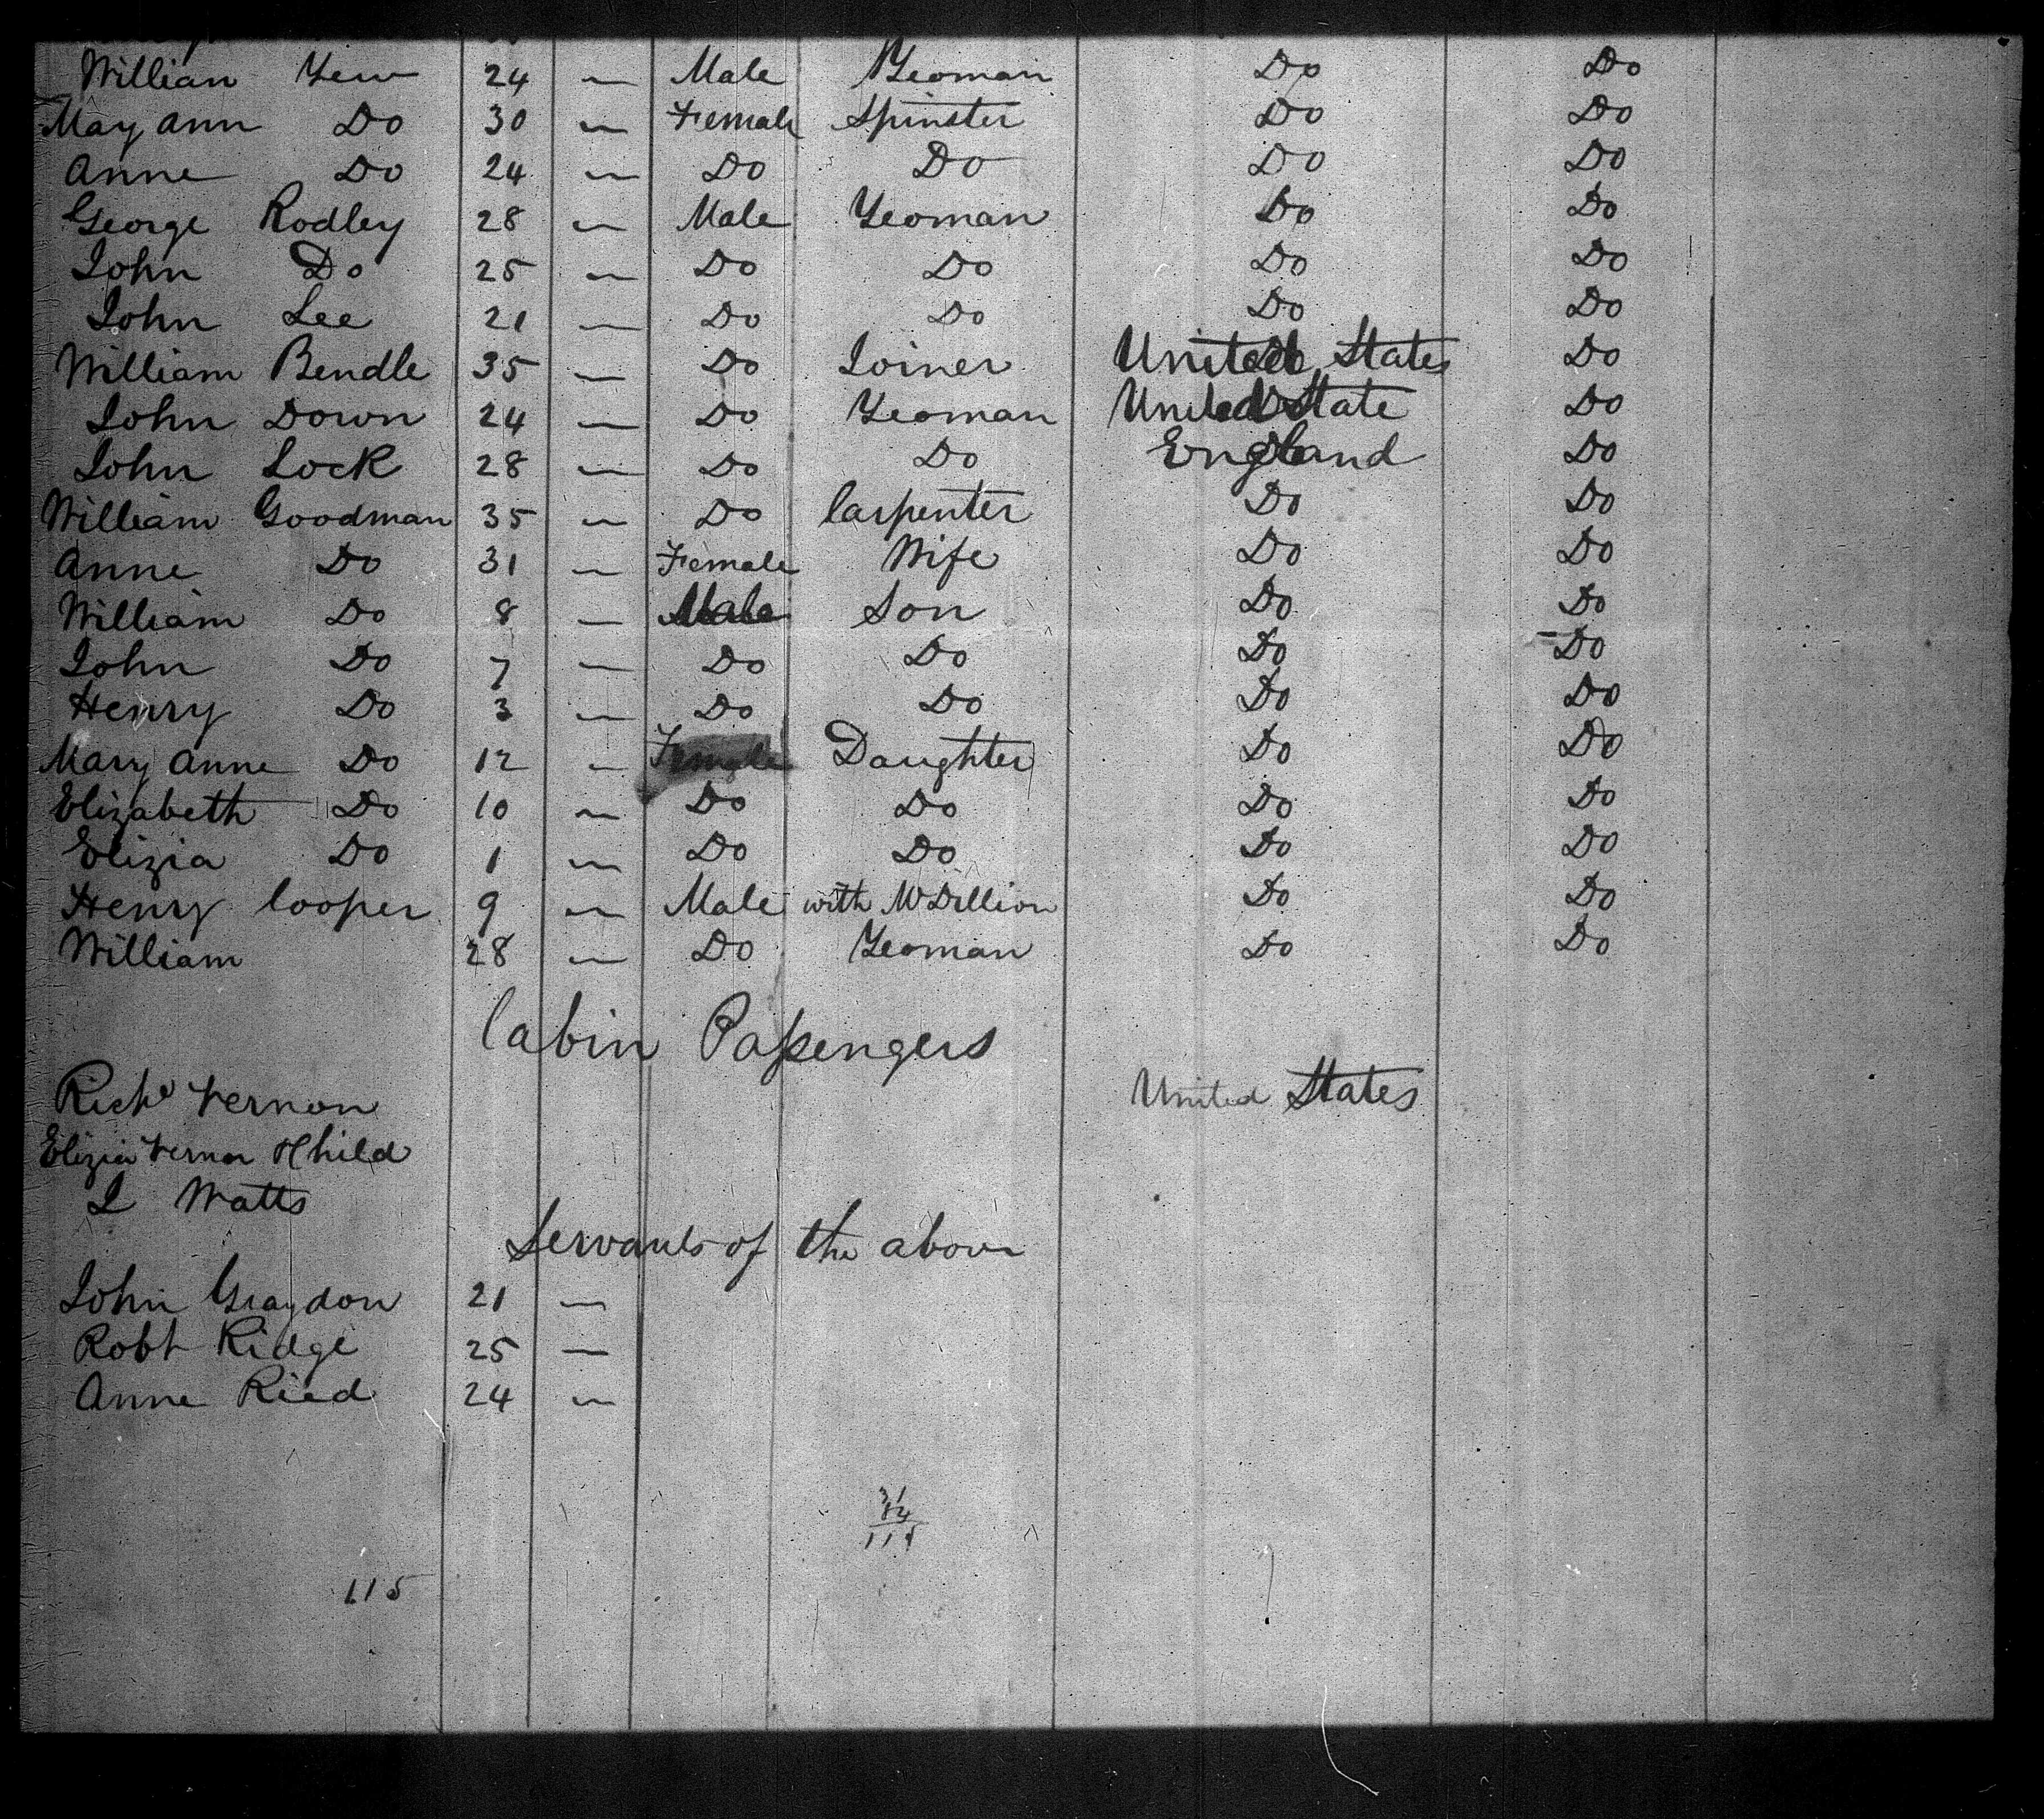 William Yew 24 — Male Yeoman Do Do
May ann Do 30 — Female Spinster Do Do
Anne Do 24 — Do Do Do Do
George Rodley 28 — Male Yeoman Do Do
John Do 25 — Do Do Do Do
John Lee 21 — Do Do Do Do
William Bendle 35 — Do Joiner United States Do
John Down 24 — Do Yeoman United State Do
John Lock 28 — Do Do England Do
William Goodman 35 — Do Carpenter Do Do
Anne Do 31 — Female Wife Do Do
William Do 8 — Male Son Do Do
John Do 7 — Do Do Do Do
Henry Do 3 — Do Do Do Do
Mary Anne Do 12 — Female Daughter Do Do
Elizabeth Do 10 — Do Do Do Do
Elizia Do 1 — Do Do Do Do
Henry Cooper 9 — Male with Do Do
William 28 — Do Yeoman Do Do
Cabin Passengers
Richd Vernon United States
Elizia Vernon Child
J Watts
Servants of the above
John Graydon 21 —
Robt Ridge 25 —
Anne Ried 24 —
31
84
115
115